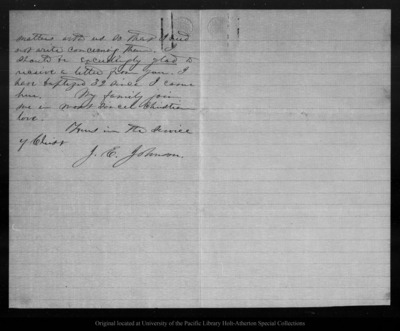 matters with us so that I need
not write concerning them. I
should be exceedingly glad to
receive a letter from you. I
have baptized 32 since I came
here. My family join
me in most sincere Christian
love.
Yours in the service
of Christ
J. E. Johnson.
Original located at University of the Pacific Library Holt-Atherton Special Collections